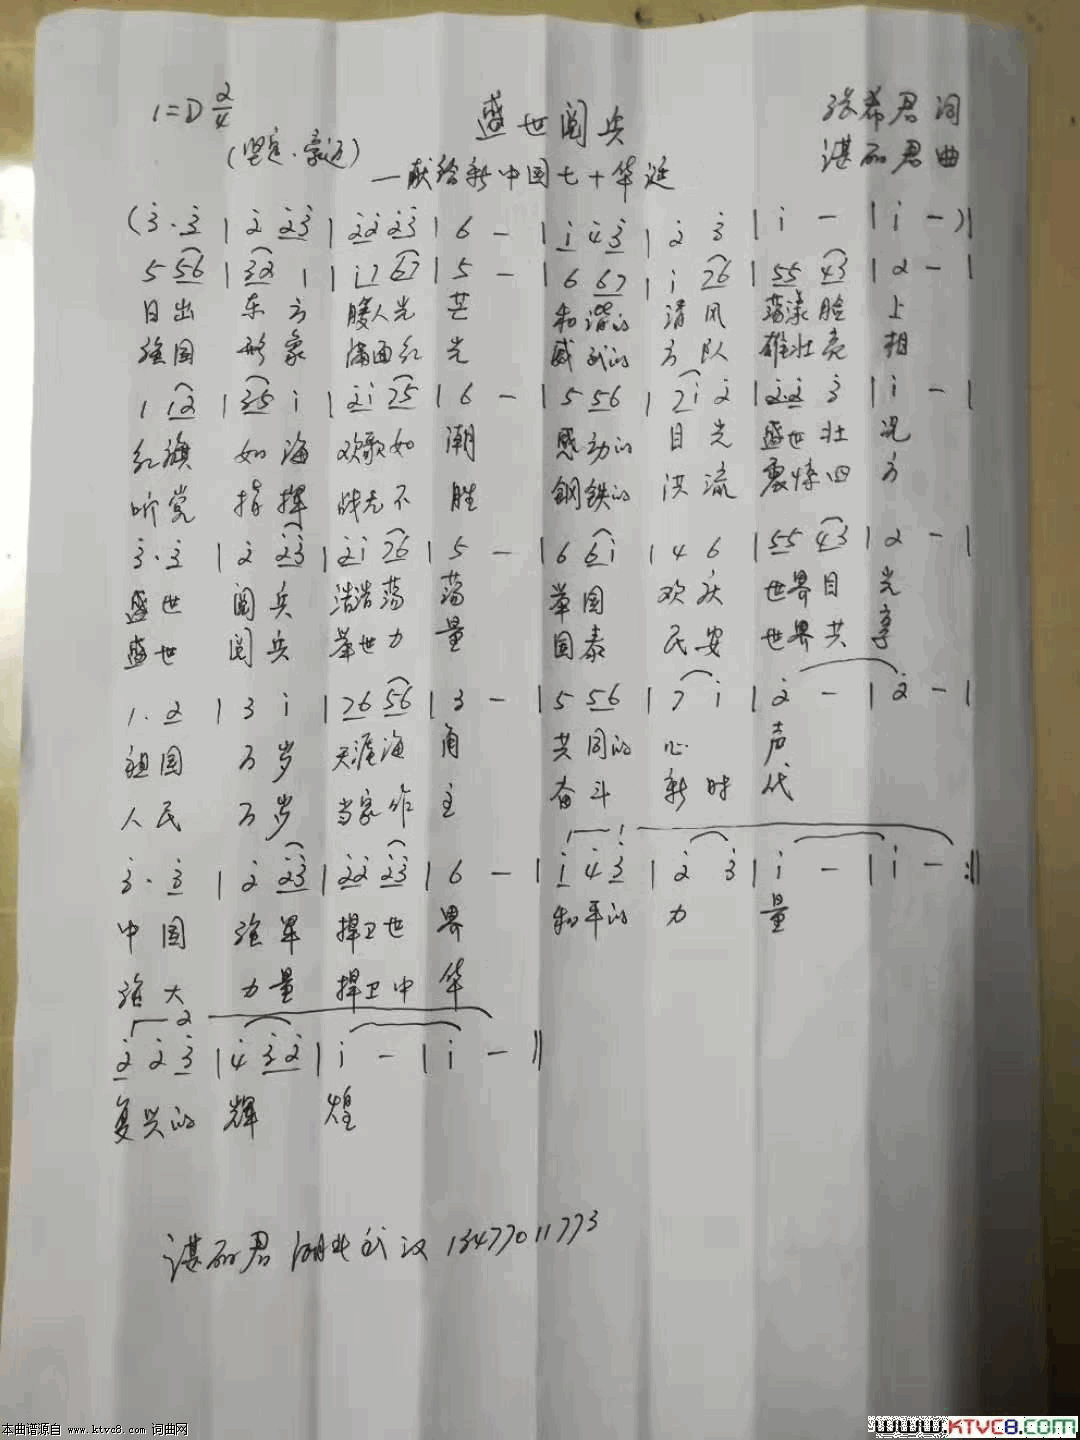 1=D 2/4
盛世阅兵
张希君词
(坚定·豪迈)
—献给新中国七十华诞
谌丽君曲
(3̇·3̇ | 2̇ 2̇3̇ | 2̇2̇ 2̇3̇ | 6 - | i 4̇ 3̇ | 2̇ 3̇ | i - | i - )|
5 56 | 32 1 | i7 67 | 5 - | 6 67 | i 76 | 55 43 | 2 - |
日出 东方 腰人光芒 和谐的 清风 荡漾脸上
强国 形象 满面红光 威武的 方队 雄壮亮相
1 12 | 35 i | 2̇i 75 | 6 - | 5 56 | 7i 2̇ | 2̇2̇ 3̇ | i - |
红旗 如海 欢歌如潮 感动的 目光 盛世壮况
听党 指挥 战无不胜 钢铁的 洪流 震悚四方
3̇·3̇ | 2̇ 2̇3̇ | 2̇i 76 | 5 - | 6 6i | 4 6 | 55 43 | 2 - |
盛世 阅兵 浩浩荡荡 举国 欢庆 世界目光
盛世 阅兵 举世力量 国泰 民安 世界共享
1·2 | 3 i | 76 56 | 3 - | 5 56 | 7 i | 2̇ - | 2̇ - |
祖国 万岁 天涯海角 共同的 心声
人民 万岁 当家作主 奋斗 新时代
1
3̇·3̇ | 2̇ 2̇3̇ | 2̇2̇ 2̇3̇ | 6 - | i 4̇ 3̇ | 2̇ 3̇ | i - | i - :‖
中国 强军 捍卫世界 和平的 力量
强大 力量 捍卫中华
2
2̇ 2̇ 3̇ | 4̇ 3̇2̇ | i - | i - ‖
复兴的 辉煌
谌丽君 湖北武汉 13477011773
本曲谱源自 www.ktvc8.com 词曲网
WWW.KTVC8.COM